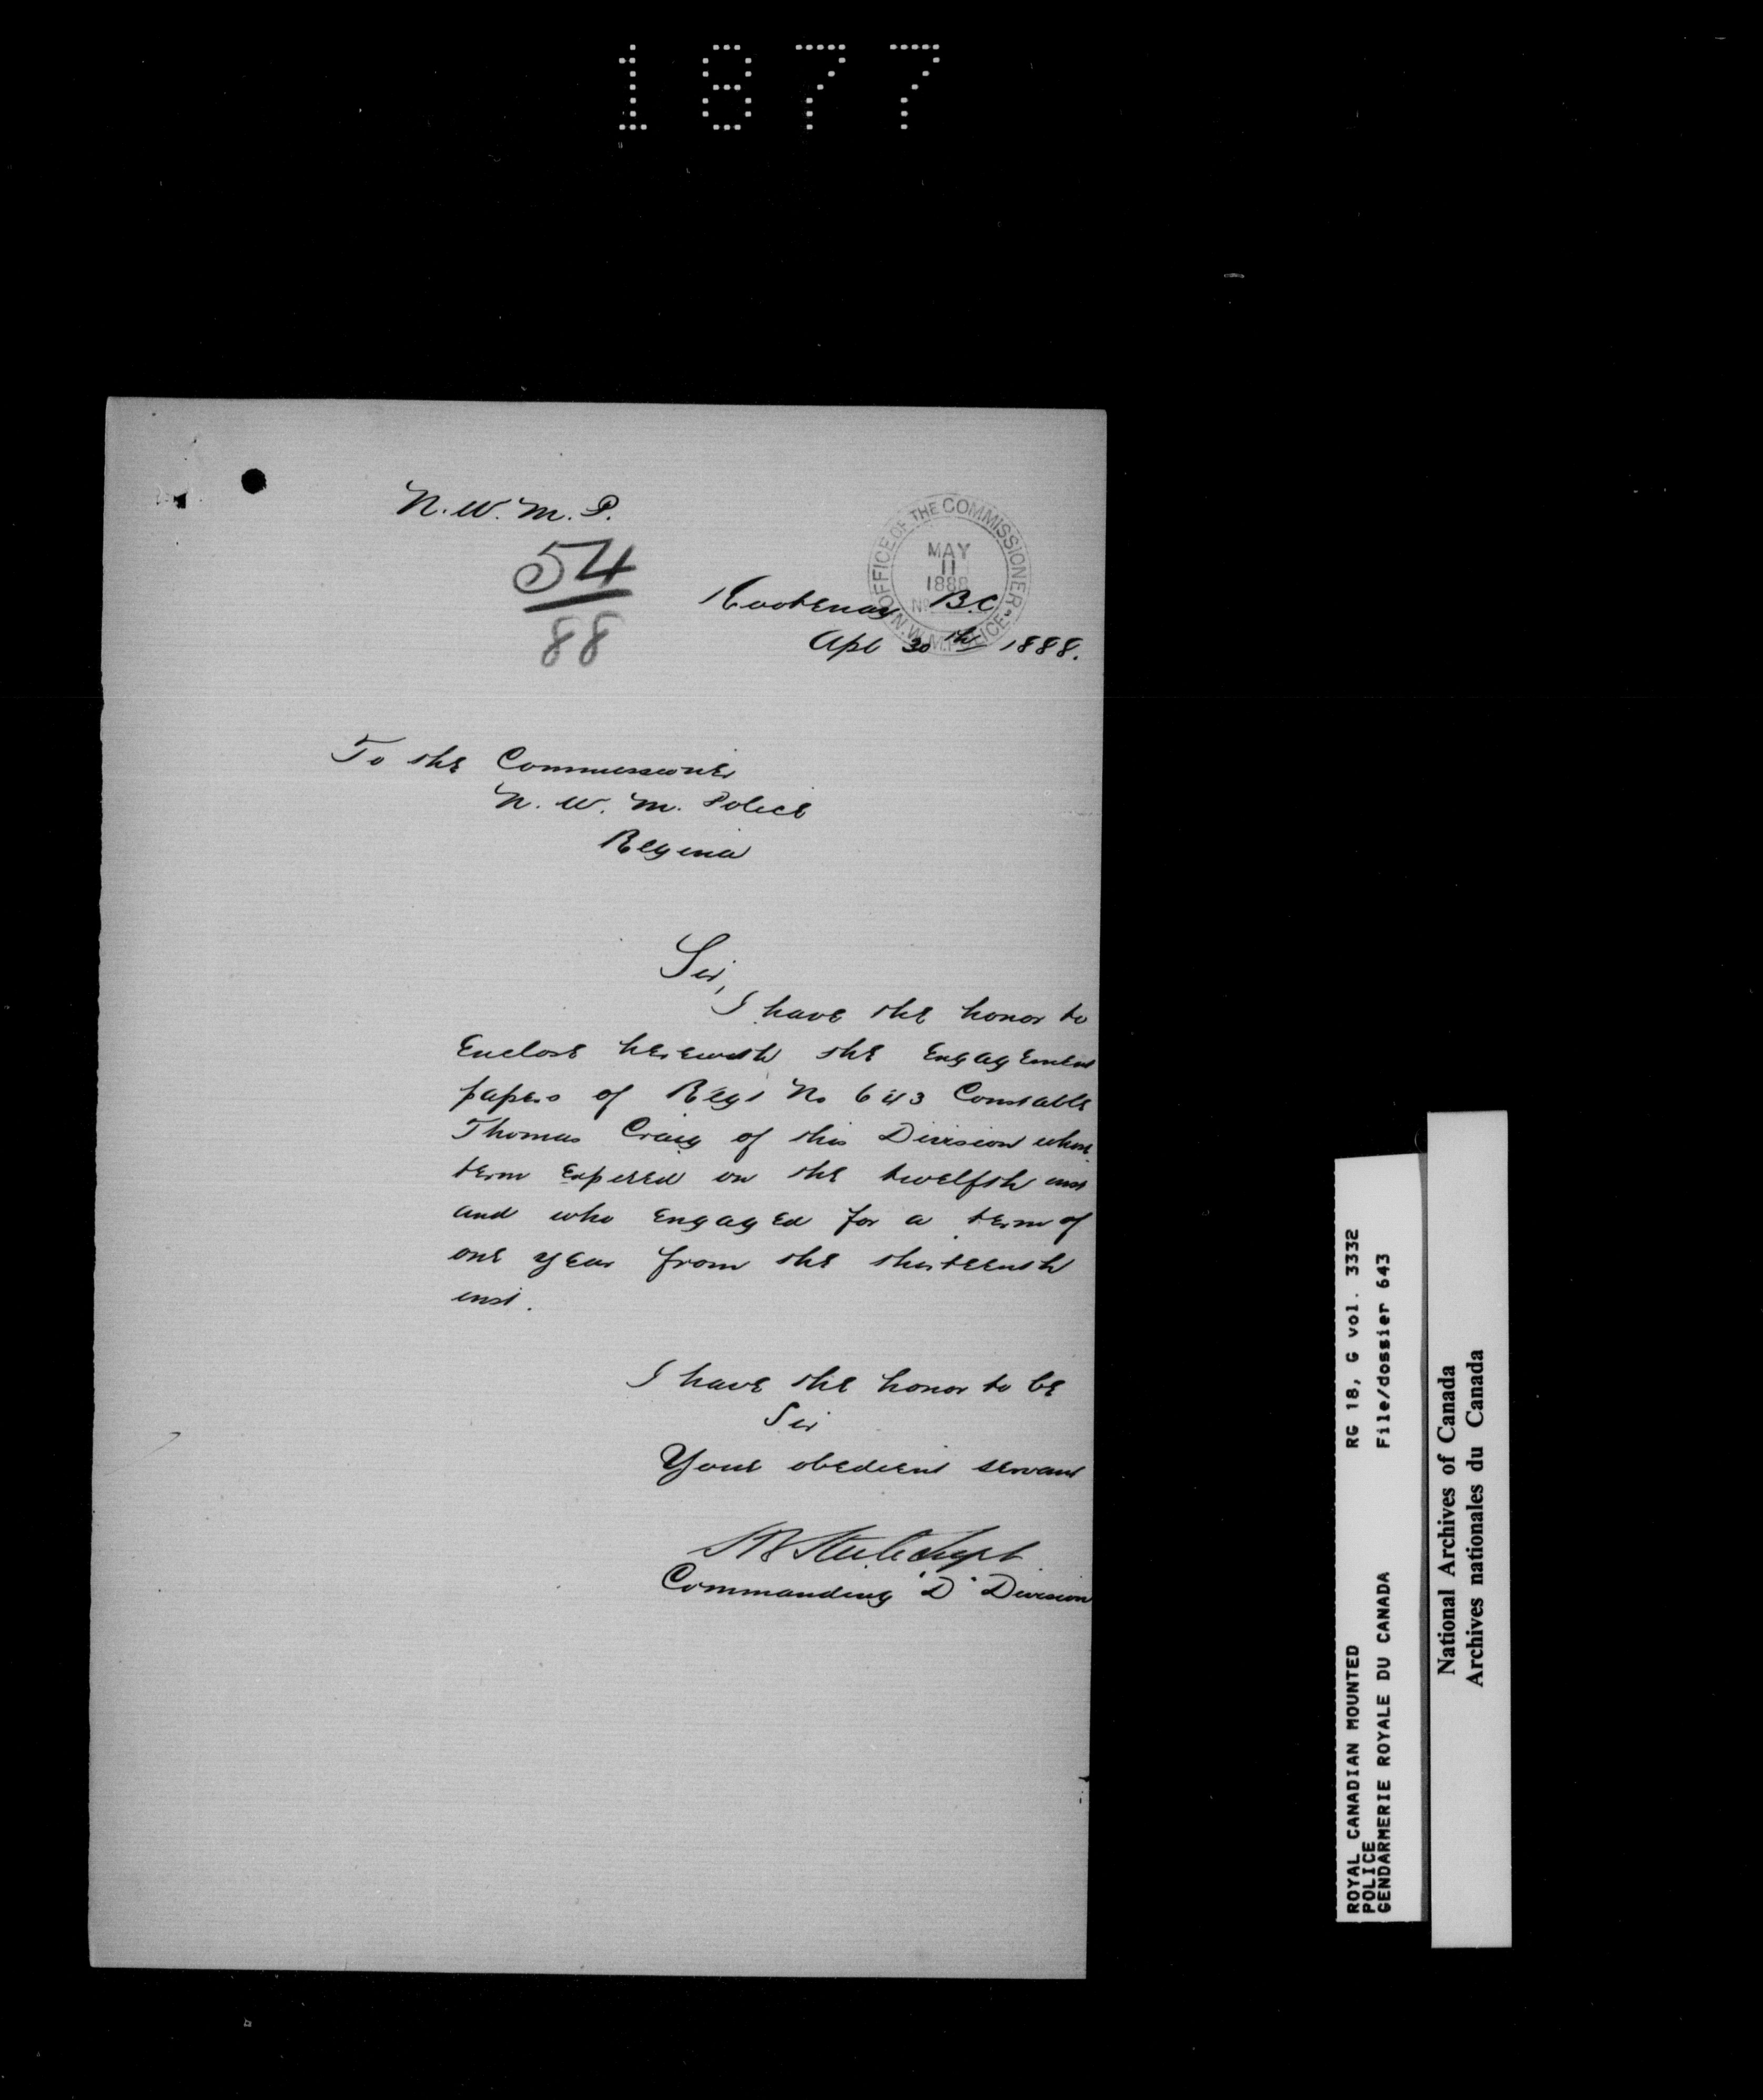 1877
N.W.M.P.
54
88
OFFICE OF THE COMMISSIONER
MAY
11
1888
No
N.W.M. POLICE
Kootenay B.C.
Apl 30th 1888.
To the Commissioner
N. W. M. Police
Regina
Sir,
I have the honor to
enclose herewith the engagement
papers of Regt No 643 Constable
Thomas Craig of this Division whose
term expired on the twelfth inst
and who engaged for a term of
one year from the thirteenth
inst.
I have the honor to be
Sir
Your obedient servant
S B Steele Supt
Commanding "D" Division
ROYAL CANADIAN MOUNTED
POLICE
GENDARMERIE ROYALE DU CANADA
RG 18, G vol. 3332
File/dossier 643
National Archives of Canada
Archives nationales du Canada